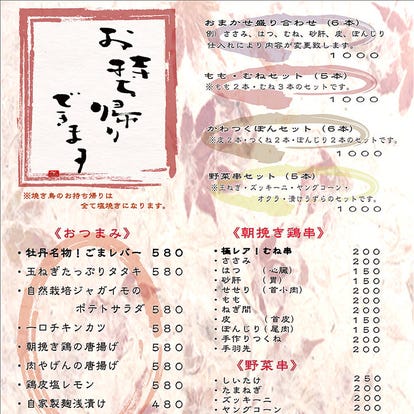 お持ち帰り
できます
※焼き鳥のお持ち帰りは
全て塩焼きになります。
おまかせ盛り合わせ (6本)
例) ささみ、はつ、むね、砂肝、皮、ぽんじり
仕入れにより内容が変更致します。
1000
もも・むねセット (5本)
※もも2本・むね3本のセットです。
1000
かわつくぽんセット (6本)
※皮2本・つくね2本・ぽんじり2本のセットです。
1000
野菜串セット (5本)
※玉ねぎ・ズッキーニ・ヤングコーン・
オクラ・漬けうずらのセットです。
1000
《おつまみ》
・牡丹名物!ごまレバー 580
・玉ねぎたっぷりタタキ 580
・自然栽培ジャガイモの
ポテトサラダ 580
・一口チキンカツ 580
・朝挽き鶏の唐揚げ 580
・肉やげんの唐揚げ 580
・鶏皮塩レモン 580
・自家製麹浅漬け 480
《朝挽き鶏串》
・極レア!むね串 200
・ささみ 200
・はつ (心臓) 150
・砂肝 (胃) 150
・せせり (首小肉) 200
・もも 200
・ねぎ間 200
・皮 (首皮) 150
・ぽんじり(尾肉) 150
・手作りつくね 200
・手羽先 200
《野菜串》
・しいたけ 250
・たまねぎ 200
・ズッキーニ 200
・ヤングコーン 200